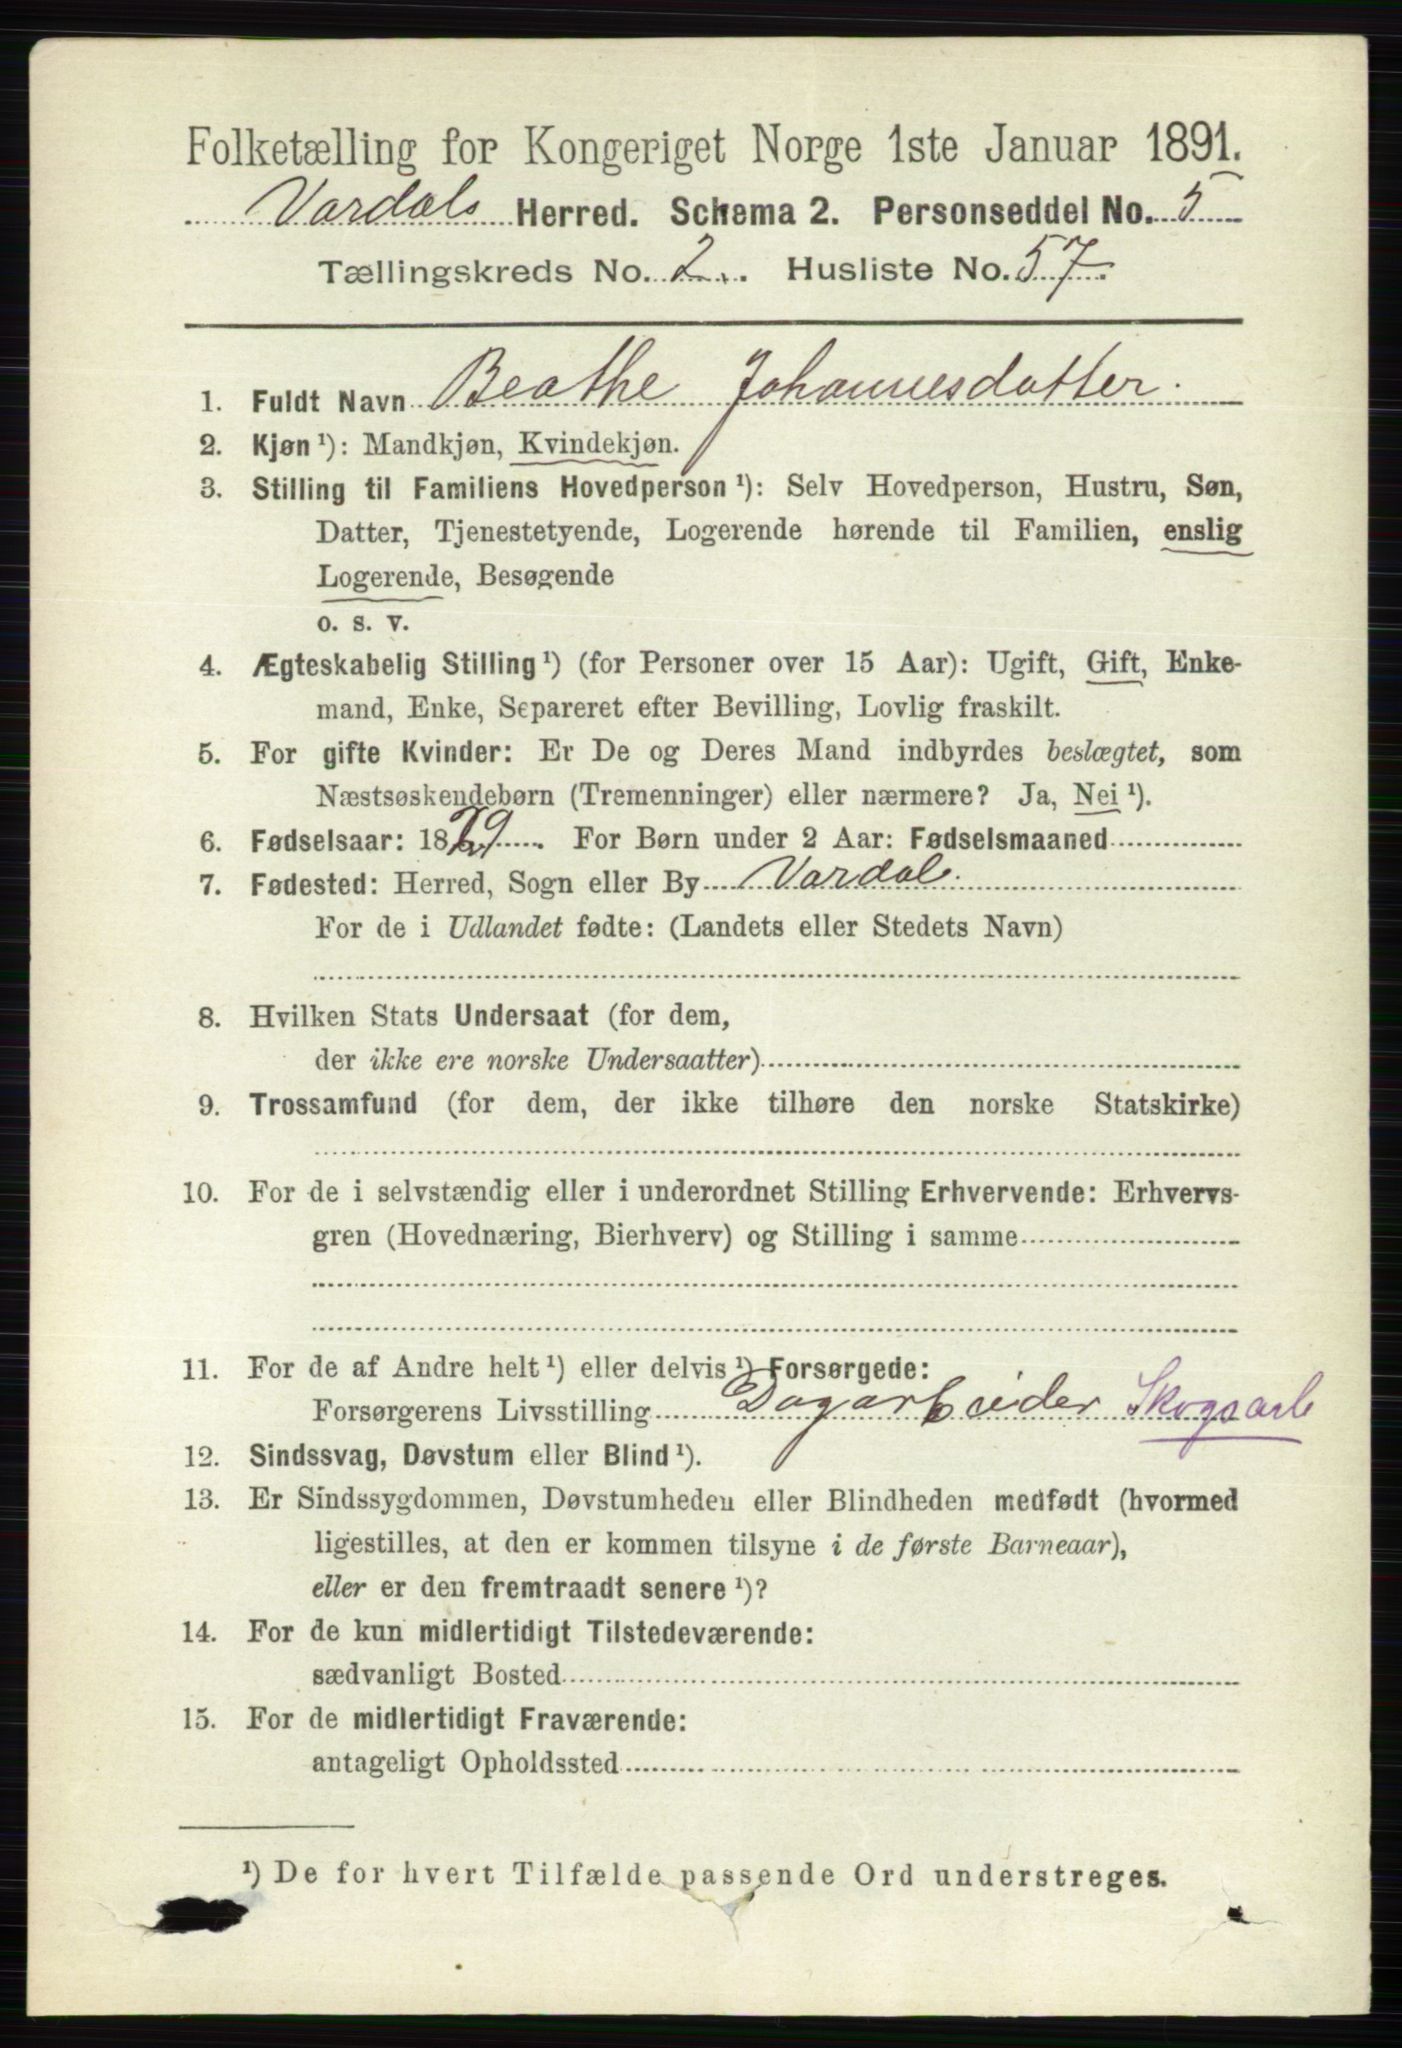 Folketælling for Kongeriget Norge 1ste Januar 1891.
Vardals Herred. Schema 2. Personseddel No. 5
Tællingskreds No. 2. Husliste No. 57.
1. Fuldt Navn Beathe Johannesdatter.
2. Kjøn ¹): Mandkjøn, Kvindekjøn.
3. Stilling til Familiens Hovedperson ¹): Selv Hovedperson, Hustru, Søn,
Datter, Tjenestetyende, Logerende hørende til Familien, enslig
Logerende, Besøgende
o. s. v.
4. Ægteskabelig Stilling ¹) (for Personer over 15 Aar): Ugift, Gift, Enke-
mand, Enke, Separeret efter Bevilling, Lovlig fraskilt.
5. For gifte Kvinder: Er De og Deres Mand indbyrdes beslægtet, som
Næstsøskendebørn (Tremenninger) eller nærmere? Ja, Nei ¹).
6. Fødselsaar: 1829. For Børn under 2 Aar: Fødselsmaaned
7. Fødested: Herred, Sogn eller By Vardal.
For de i Udlandet fødte: (Landets eller Stedets Navn)
8. Hvilken Stats Undersaat (for dem,
der ikke ere norske Undersaatter)
9. Trossamfund (for dem, der ikke tilhøre den norske Statskirke)
10. For de i selvstændig eller i underordnet Stilling Erhvervende: Erhvervs-
gren (Hovednæring, Bierhverv) og Stilling i samme
11. For de af Andre helt ¹) eller delvis ¹) Forsørgede:
Forsørgerens Livsstilling Dagarbeider Skogsarb
12. Sindssvag, Døvstum eller Blind ¹).
13. Er Sindssygdommen, Døvstumheden eller Blindheden medfødt (hvormed
ligestilles, at den er kommen tilsyne i de første Barneaar),
eller er den fremtraadt senere ¹)?
14. For de kun midlertidigt Tilstedeværende:
sædvanligt Bosted
15. For de midlertidigt Fraværende:
antageligt Opholdssted
¹) De for hvert Tilfælde passende Ord understreges.